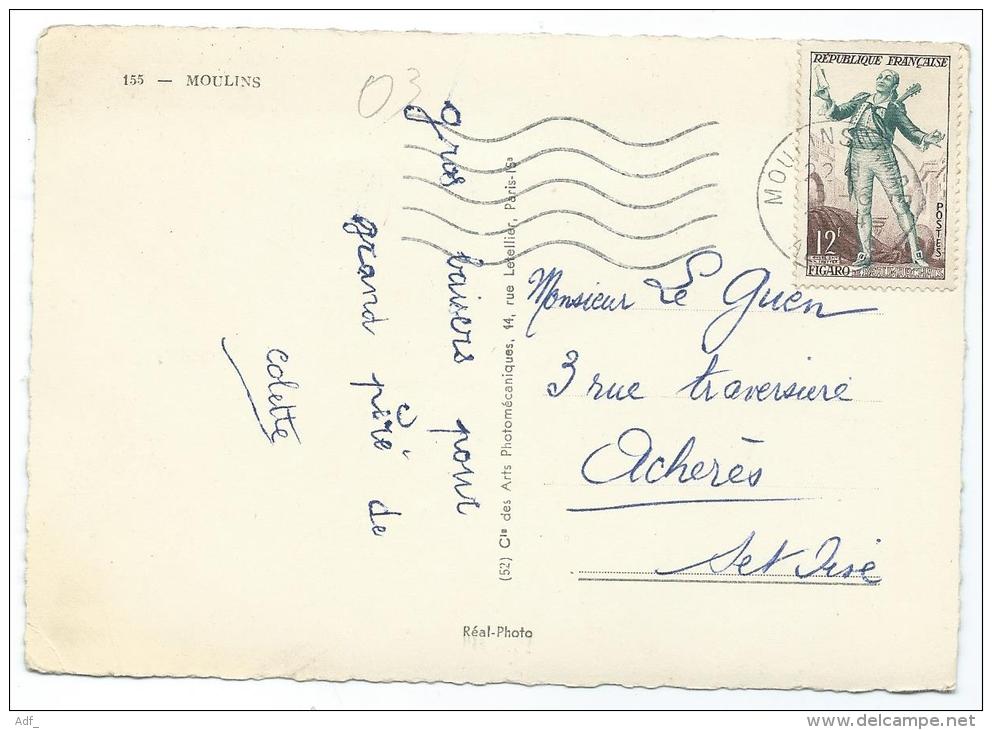 155 — MOULINS
03
Gros baisers pour
grand père de
Colette
(52) Cie des Arts Photomécaniques, 44, rue Letellier, Paris-15e
Réal-Photo
RÉPUBLIQUE FRANÇAISE
POSTES
12F
FIGARO
MOULINS
22
Monsieur Le Guen
3 rue traversière
Acherès
Set Oise
Adf_
www.delcampe.net